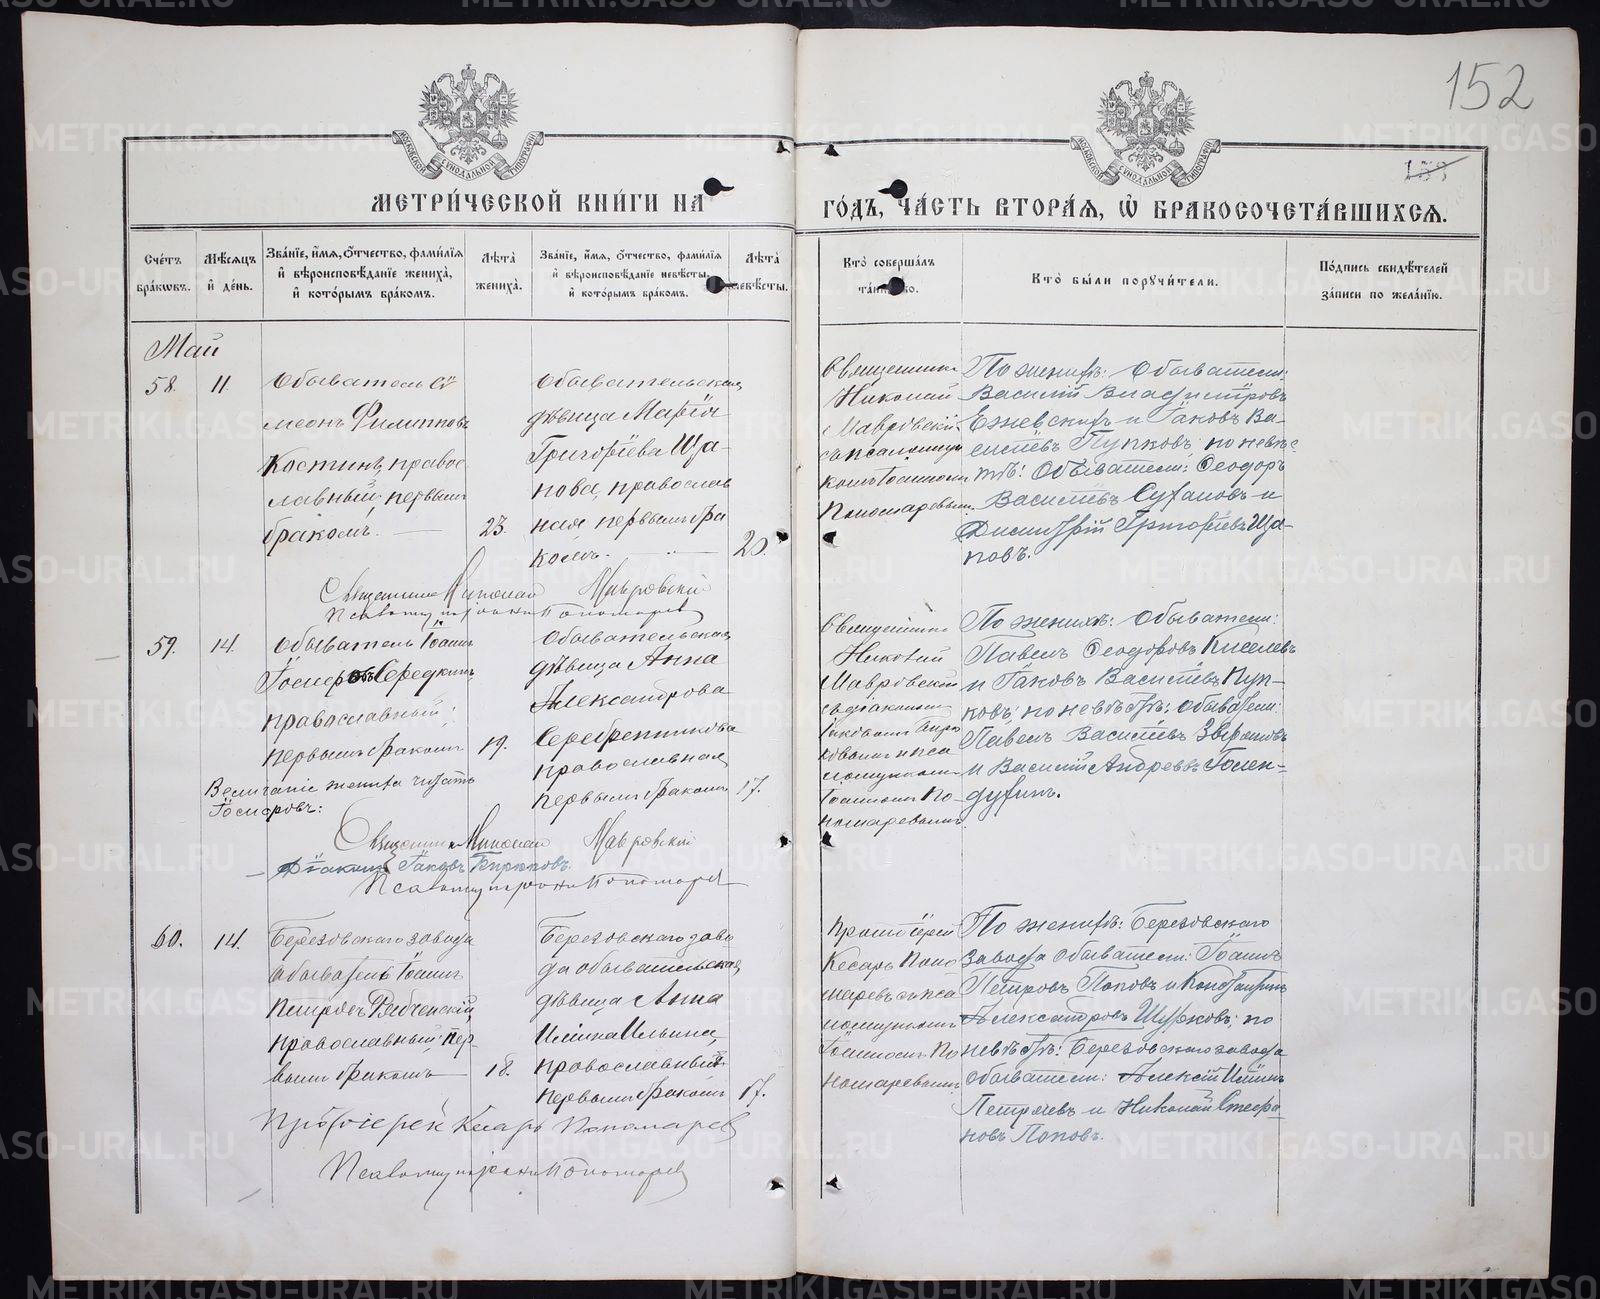 152
МОСКОВСКОЙ СѴНОДАЛЬНОЙ ТИПОГРАФІИ
МОСКОВСКОЙ СѴНОДАЛЬНОЙ ТИПОГРАФІИ
МЕТРИ́ЧЕСКОЙ КНИ́ГИ НА
ГО́ДЪ, ЧА́СТЬ ВТОРА́Я, Ѡ҆ БРАКОСОЧЕТА́ВШИХСЯ.
Сче́тъ бра́кѡвъ.
Мѣ́сяцъ и҆ де́нь.
Зва́нїе, и҆́мя, ѻ҆́тчество, фами́лїя и҆ вѣроисповѣ́данїе жениха̀, и҆ кото́рымъ бра́комъ.
Лѣ́та жениха̀.
Зва́нїе, и҆́мя, ѻ҆́тчество, фами́лїя и҆ вѣроисповѣ́данїе невѣ́сты, и҆ кото́рымъ бра́комъ.
Лѣ́та невѣ́сты.
Кто̀ соверша́лъ та́инство.
Кто̀ бы́ли порꙋчи́тели.
По́дпись свидѣ́телей за́писи по жела́нїю.
Май
58.
11.
Обыватель Си
меонъ Филипповъ
Костинъ, правос
лавный, первымъ
бракомъ.
23.
Обывательская
дѣвица Марія
Григоріева Ща-
пова, православ
ная первымъ бра
комъ.
20.
Священникъ
Николай
Мавровскій
съ псаломщи
комъ Іоанномъ
Пономаревымъ.
По женихѣ: Обыватели:
Василій
и Іаковъ Ва-
силіевъ Пупковъ; по невѣс
тѣ: Обыватели: Ѳеодоръ
Василіевъ и
Димитрій Григоріевъ Ща-
повъ.
Священникъ Николай Мавровскій
Псаломщикъ Іоаннъ Пономаревъ
59.
14.
Обыватель Іоаннъ
Іосифовъ Середкинъ,
православный;
первымъ бракомъ
19.
жениха читать
Іосифовъ:
Обывательская
дѣвица Анна
Александрова
Серебренникова
православная
первымъ бракомъ
17.
Священникъ
Николай
Мавровскій
съ діакономъ
Іаковомъ Бирю
ковымъ и пса
ломщикомъ
Іоанномъ По-
номаревымъ.
По женихѣ: Обыватели:
Павелъ Ѳеодоровъ Киселевъ
и Іаковъ Василіевъ Пуп-
ковъ; по невѣстѣ: Обыватели:
Павелъ Василіевъ
и Василій Андреевъ Голен-
духинъ.
Священникъ Николай Мавровскій
Діаконъ Іаковъ Бирюковъ.
Псаломщикъ Іоаннъ Пономаревъ
60.
14.
Березовскаго завода
обыватель Іоаннъ
Петровъ
православный пер-
вымъ бракомъ
18.
Березовскаго заво
да обывательская
дѣвица Анна
Ильина,
православный
первымъ бракомъ
17.
Протоіерей
Кесарь Поно
маревъ съ пса
ломщикомъ
Іоанномъ По
номаревымъ
По женихѣ: Березовскаго
завода обыватели: Іоаннъ
Петровъ Поповъ и Константинъ
Александровъ по
невѣстѣ: Березовскаго завода
обыватели: Алексій Иліинъ
и Николай Стефа
новъ Поповъ.
Протоіерей Кесарь Пономаревъ
Псаломщикъ Іоаннъ Пономаревъ
METRIKI.GASO-URAL.RU